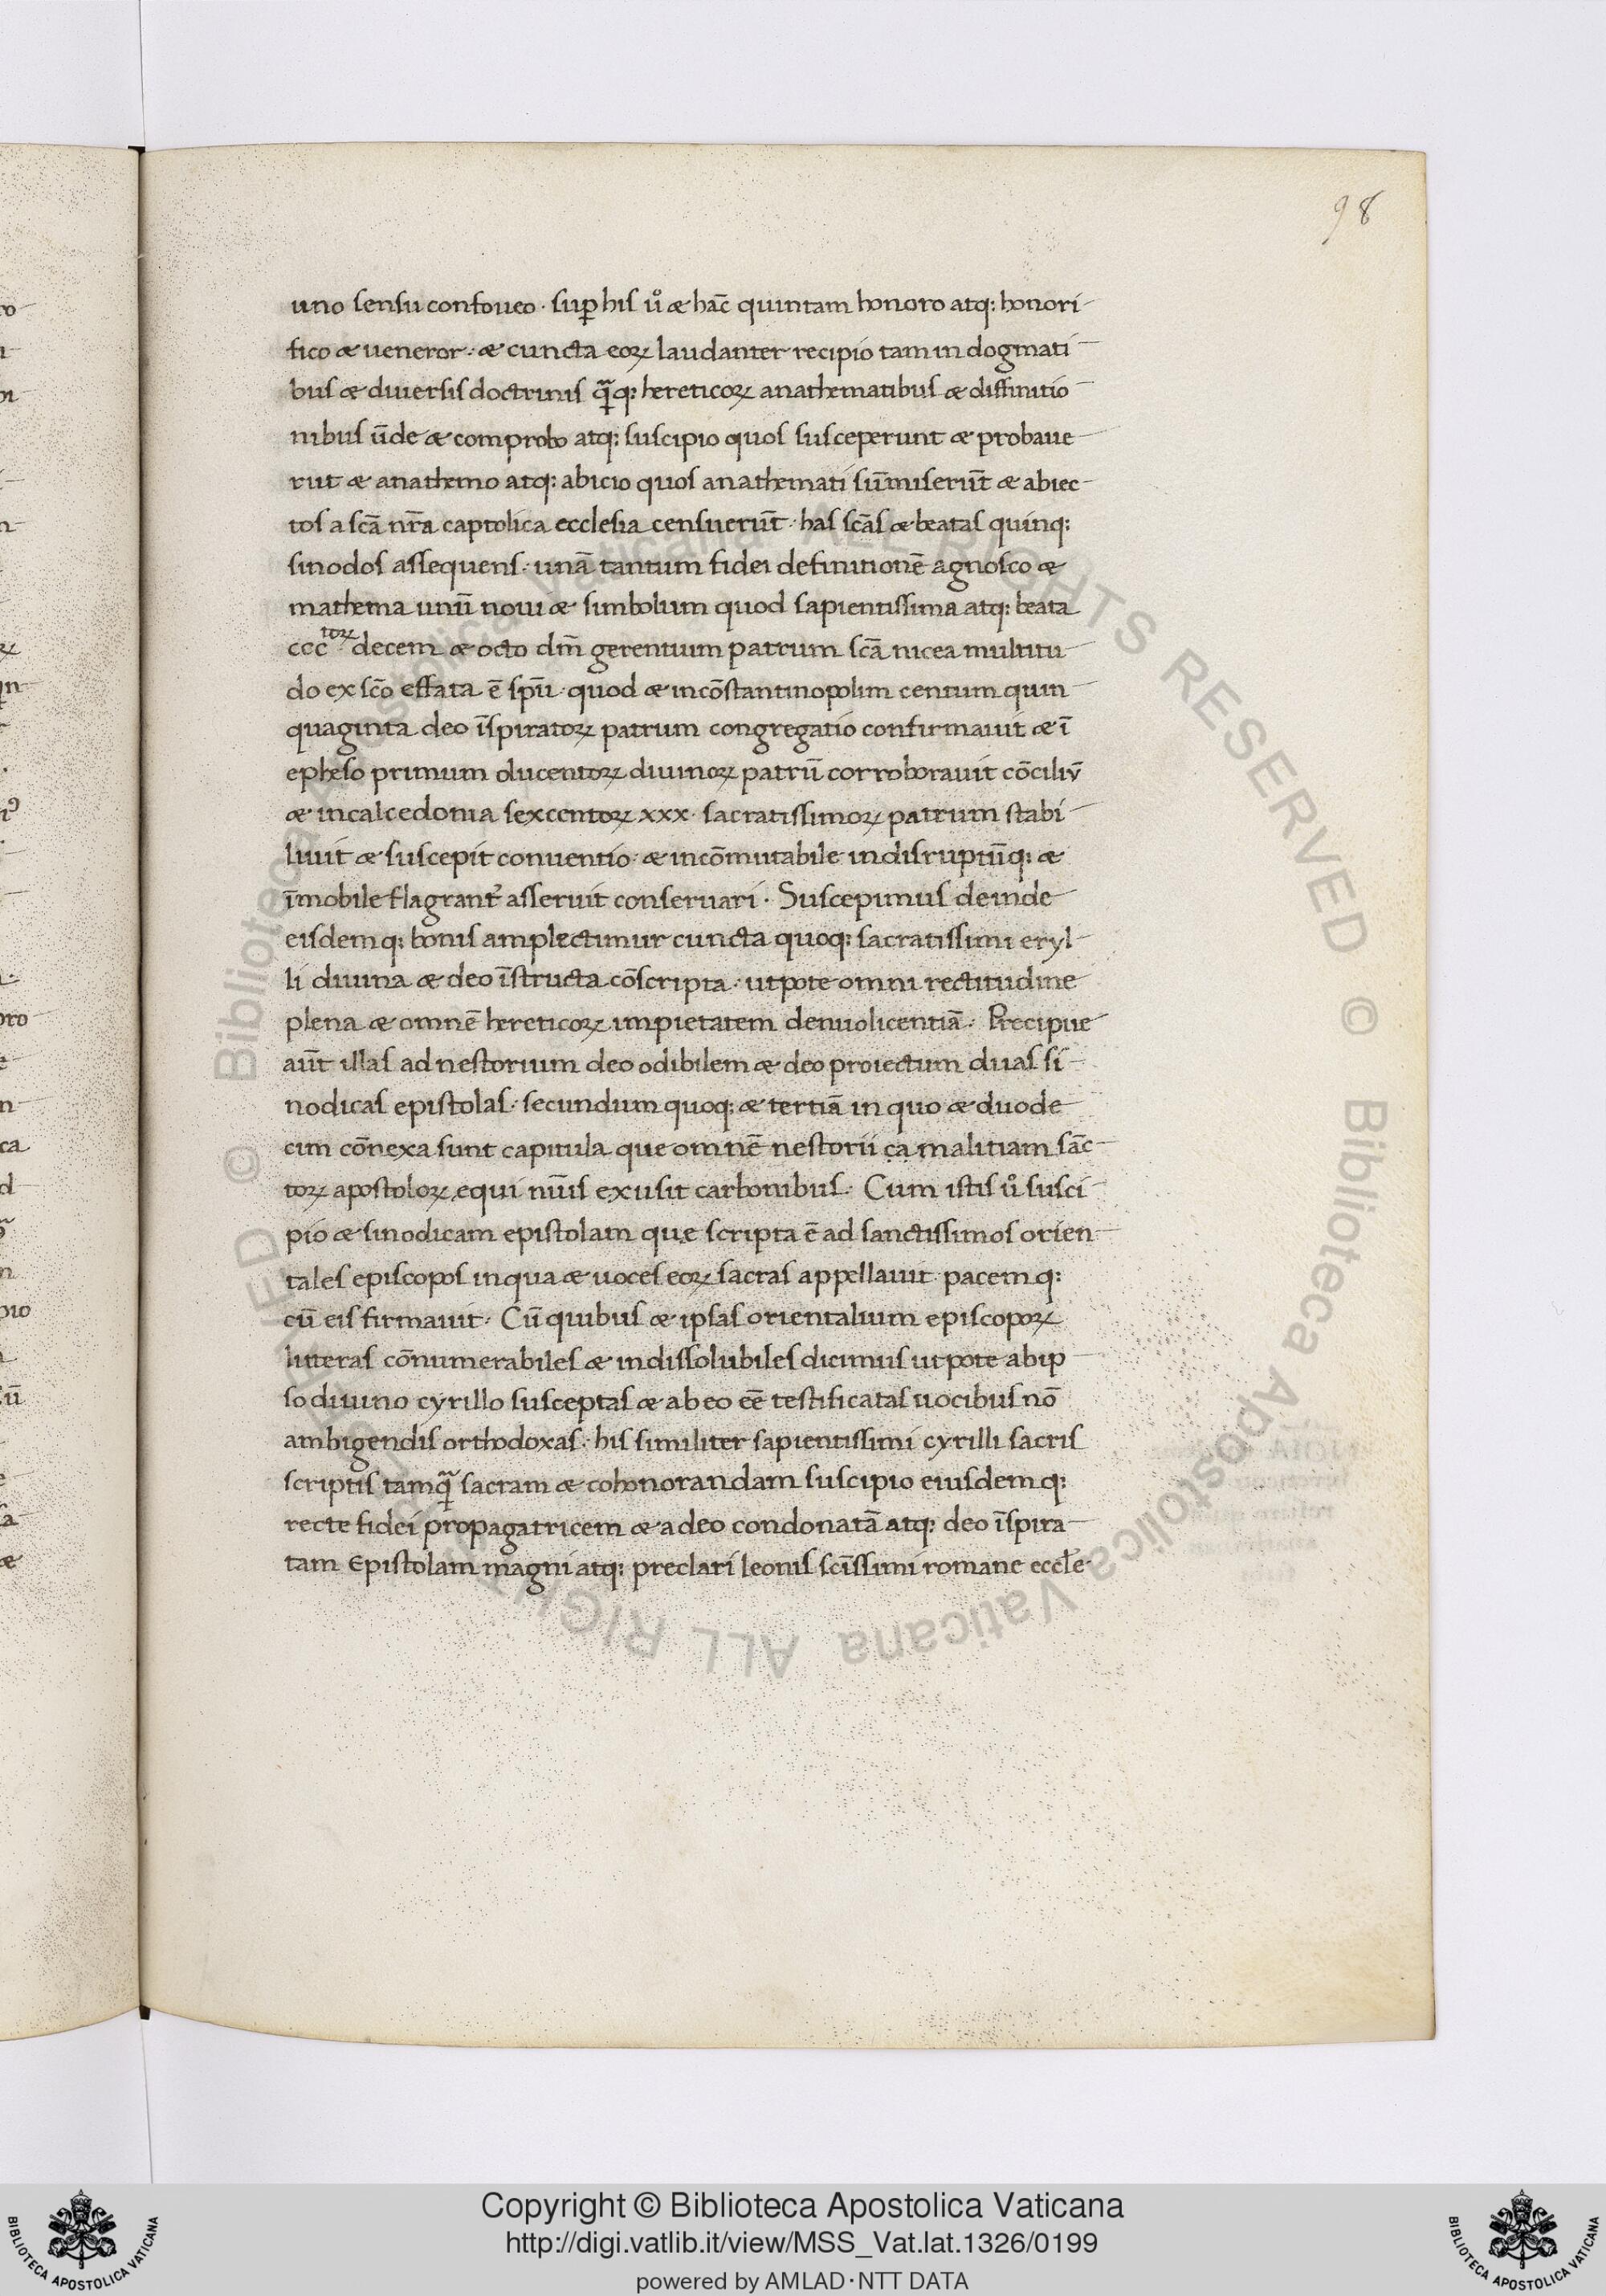 98
uno sensu confoueo · suꝑ his ů & hāc quintam honoro atq: honori
fico & ueneror · & cuncta eoꝝ laudanter recipio tam in dogmati
bus & diuersis doctrinis q̃q: hereticoꝝ anathematibus & diffinitio
nibus ūde & comprobo atq: suscipio quos susceperunt & probaue
rut & anathemo atq: abicio quos anathemati sūmiserūt & abiec
tos a scā nr̄a captolica ecclesia censuerūt · has scās & beatas quinq:
sinodos assequens · unā tantum fidei definitionē agnosco &
mathema unū noui & simbolum quod sapientissima atq: beata
ccc toꝝ decem & octo dm̄ gerentium patrum scā nicea multitu
do ex scō effata ē spū · quod & incōstantinopolim centum quin
quaginta deo īspiratoꝝ patrum congregatio confirmauit & ī
epheso primum ducentoꝝ diuinoꝝ patrū corroborauit cōciliū
& incalcedonia sexcentoꝝ xxx · sacratissimoꝝ patrum stabi
liuit & suscepit conuentio · & incōmutabile indisruptūq: &
īmobile flagrant᷑ asseruit conseruari · Suscepimus deinde
eisdemq: bonis amplectimur cuncta quoq: sacratissimi eryl
li diuina & deo īstructa cōscripta · utpote omni rectitudine
plena & omnē hereticoꝝ impietatem denuolicentiā · Precipue
aūt illas ad nestorium deo odibilem & deo proiectum duas si
nodicas epistolas · secundum quoq: & tertiā in quo & duode
cim cōnexa sunt capitula que omnē nestorii ca malitiam sāc
toꝝ apostoloꝝ equi nūis exusit carbonibus · Cum istis ů susci
pio & sinodicam epistolam que scripta ē ad sanctissimos orien
tales episcopos inqua & uoces eoꝝ sacras appellauit pacemq:
cū eis firmauit · Cū quibus & ipsas orientalium episcopoꝝ
litteras cōnumerabiles & indissolubiles dicimus utpote abip
so diuino cyrillo susceptas & ab eo eē testificatas uocibus nō
ambigendis orthodoxas · his similiter sapientissimi cyrilli sacris
scriptis tamq̃ sacram & cohonorandam suscipio eiusdemq:
recte fidei propagatricem & adeo condonatā atq: deo īspira
tam Epistolam magni atq: preclari leonis scīssimi romane eccl̄e
Copyright © Biblioteca Apostolica Vaticana
http://digi.vatlib.it/view/MSS_Vat.lat.1326/0199
powered by AMLAD·NTT DATA
BIBLIOTECA APOSTOLICA VATICANA
BIBLIOTECA APOSTOLICA VATICANA
© Biblioteca Apostolica Vaticana ALL RIGHTS RESERVED © Biblioteca Apostolica Vaticana ALL RIGHTS RESERVED